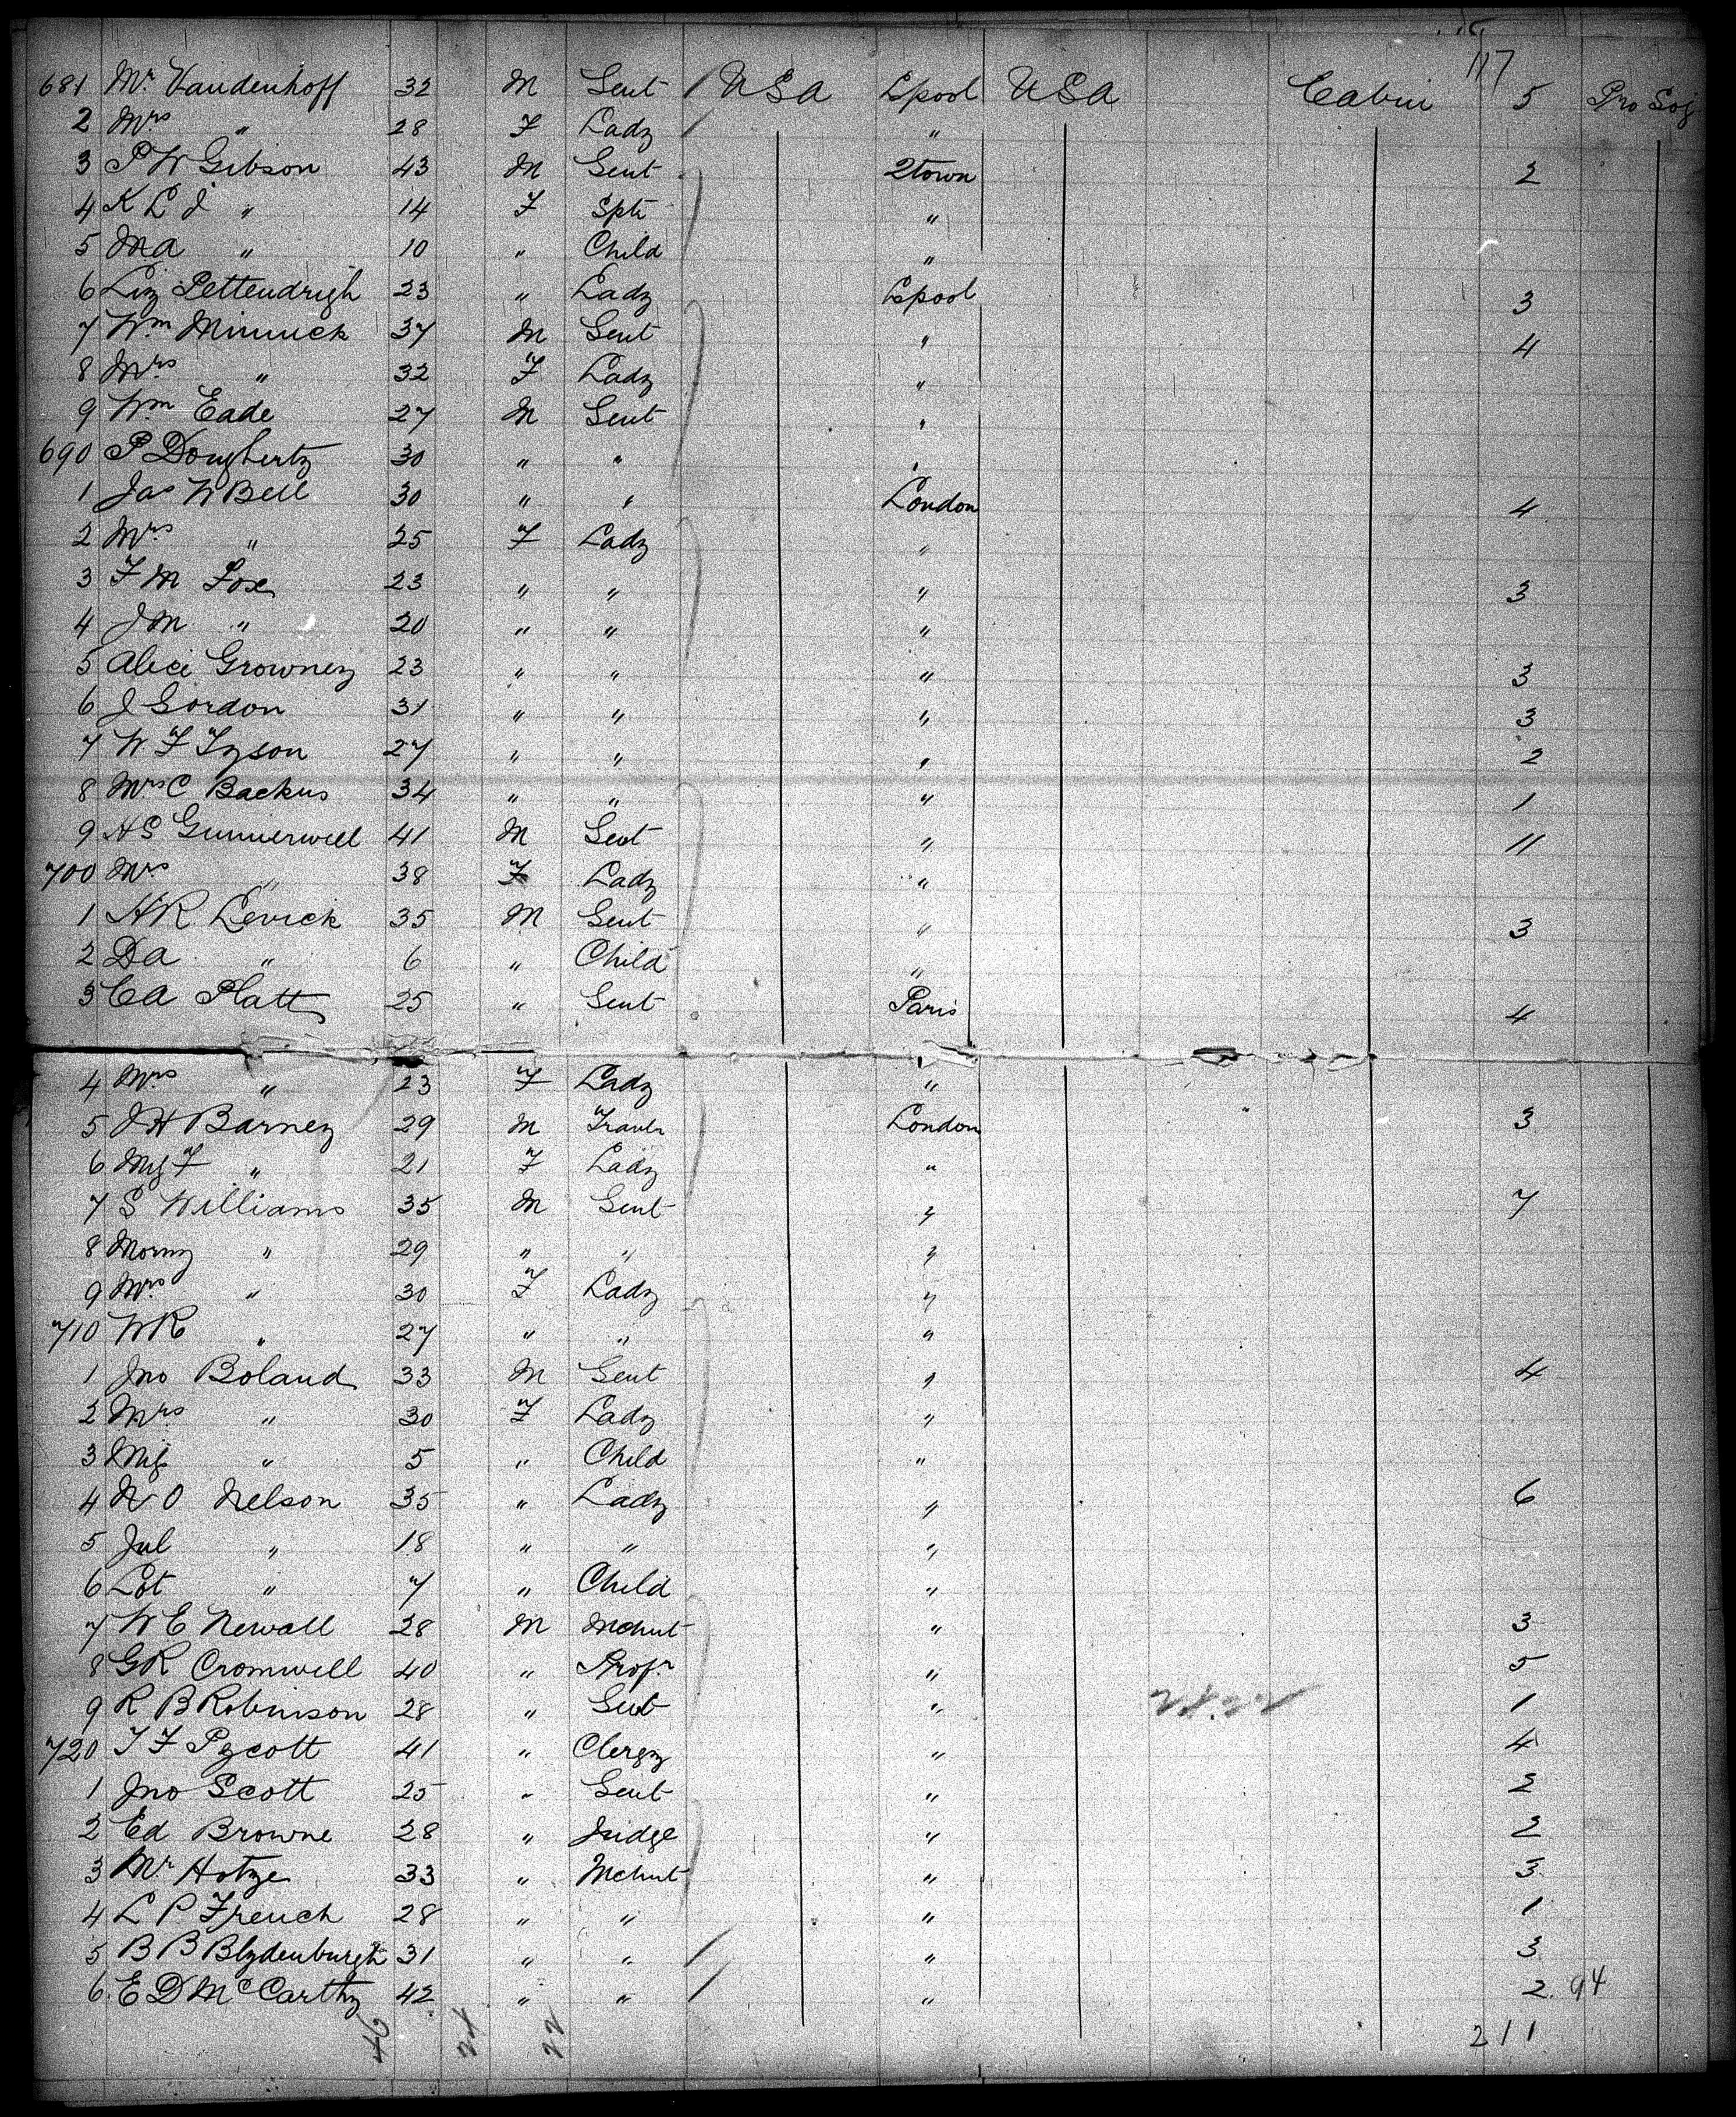 117
681 Mr Vandenhoff 32 M Gent USA Lpool USA Cabin 5 Pro Soj
2 Mrs " 28 F Lady "
3 P W Gibson 43 M Gent 2town 2
4 K L J " 14 F Spr "
5 M A " 10 " Child "
6 Liz Pettendrigh 23 " Lady Lpool 3
7 Wm Minnick 37 M Gent " 4
8 Mrs " 32 F Lady "
9 Wm Eade 27 M Gent "
690 P Dougherty 30 " " "
1 Jas W Bell 30 " " London 4
2 Mrs " 25 F Lady "
3 F M Fox 23 " " " 3
4 J M " 20 " " "
5 Alice Growney 23 " " " 3
6 J Gordon 31 " " " 3
7 W F Tyson 27 " " " 2
8 Mrs C Backus 34 " " " 1
9 H S Gunnerwell 41 M Gent " 11
700 Mrs " 38 F Lady "
1 H R Levick 35 M Gent " 3
2 D A " 6 " Child "
3 C A Platt 25 " Gent Paris 4
4 Mrs " 23 F Lady "
5 J H Barney 29 M Travlr London 3
6 F " 21 F Lady "
7 S Williams 35 M Gent " 7
8 Morny " 29 " " "
9 Mrs " 30 F Lady "
710 W R " 27 " " "
1 Jno Boland 33 M Gent " 4
2 Mrs " 30 F Lady "
3 " 5 " Child "
4 N O Nelson 35 " Lady " 6
5 Jul " 18 " " "
6 Lot " 7 " Child "
7 W E Newall 28 M Mchnt " 3
8 G R Cromwell 40 " Profr " 5
9 R B Robinson 28 " Gent " 1
720 T F Pycott 41 " Clergy " 4
1 Jno Scott 25 " Gent " 2
2 Ed Browne 28 " Judge " 2
3 Mr Hotze 33 " Mchnt " 3
4 L P French 28 " " " 1
5 B B Blydenburgh 31 " " " 3
6 E D McCarthy 42 " " " 2. 94
46 24 22 211